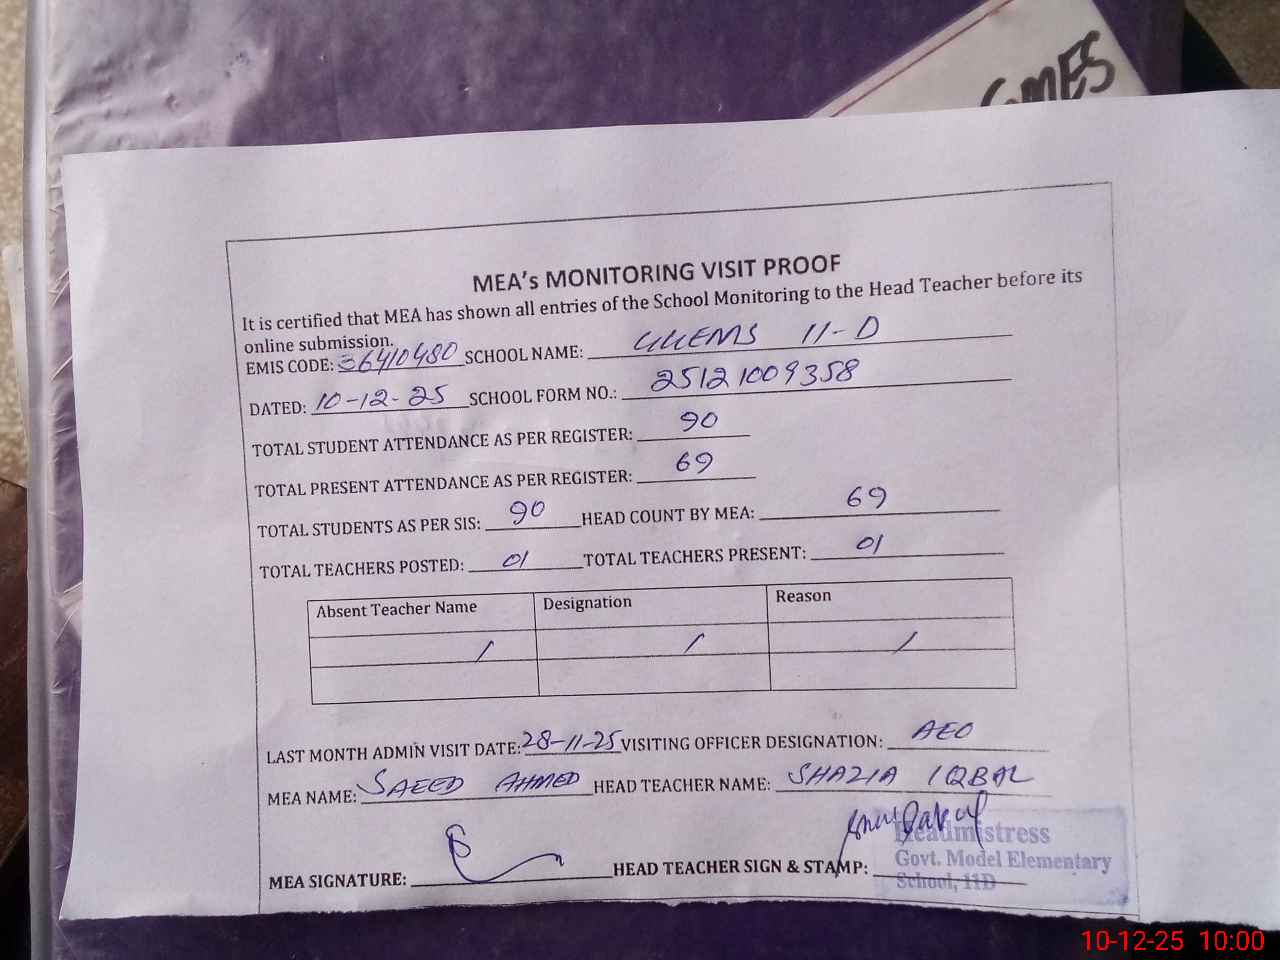 GMES
MEA's MONITORING VISIT PROOF
It is certified that MEA has shown all entries of the School Monitoring to the Head Teacher before its
online submission.
EMIS CODE: 36410480 SCHOOL NAME: 11-D
DATED: 10-12-25 SCHOOL FORM NO.: 25121009358
TOTAL STUDENT ATTENDANCE AS PER REGISTER: 90
TOTAL PRESENT ATTENDANCE AS PER REGISTER: 69
TOTAL STUDENTS AS PER SIS: 90 HEAD COUNT BY MEA: 69
TOTAL TEACHERS POSTED: 01 TOTAL TEACHERS PRESENT: 01
Absent Teacher Name Designation Reason
/ / /
LAST MONTH ADMIN VISIT DATE: 28-11-25 VISITING OFFICER DESIGNATION: AEO
MEA NAME: SAEED AHMED HEAD TEACHER NAME: SHAZIA IQBAL
MEA SIGNATURE: HEAD TEACHER SIGN & STAMP:
Headmistress
Govt. Model Elementary
School, 11D
10-12-25 10:00